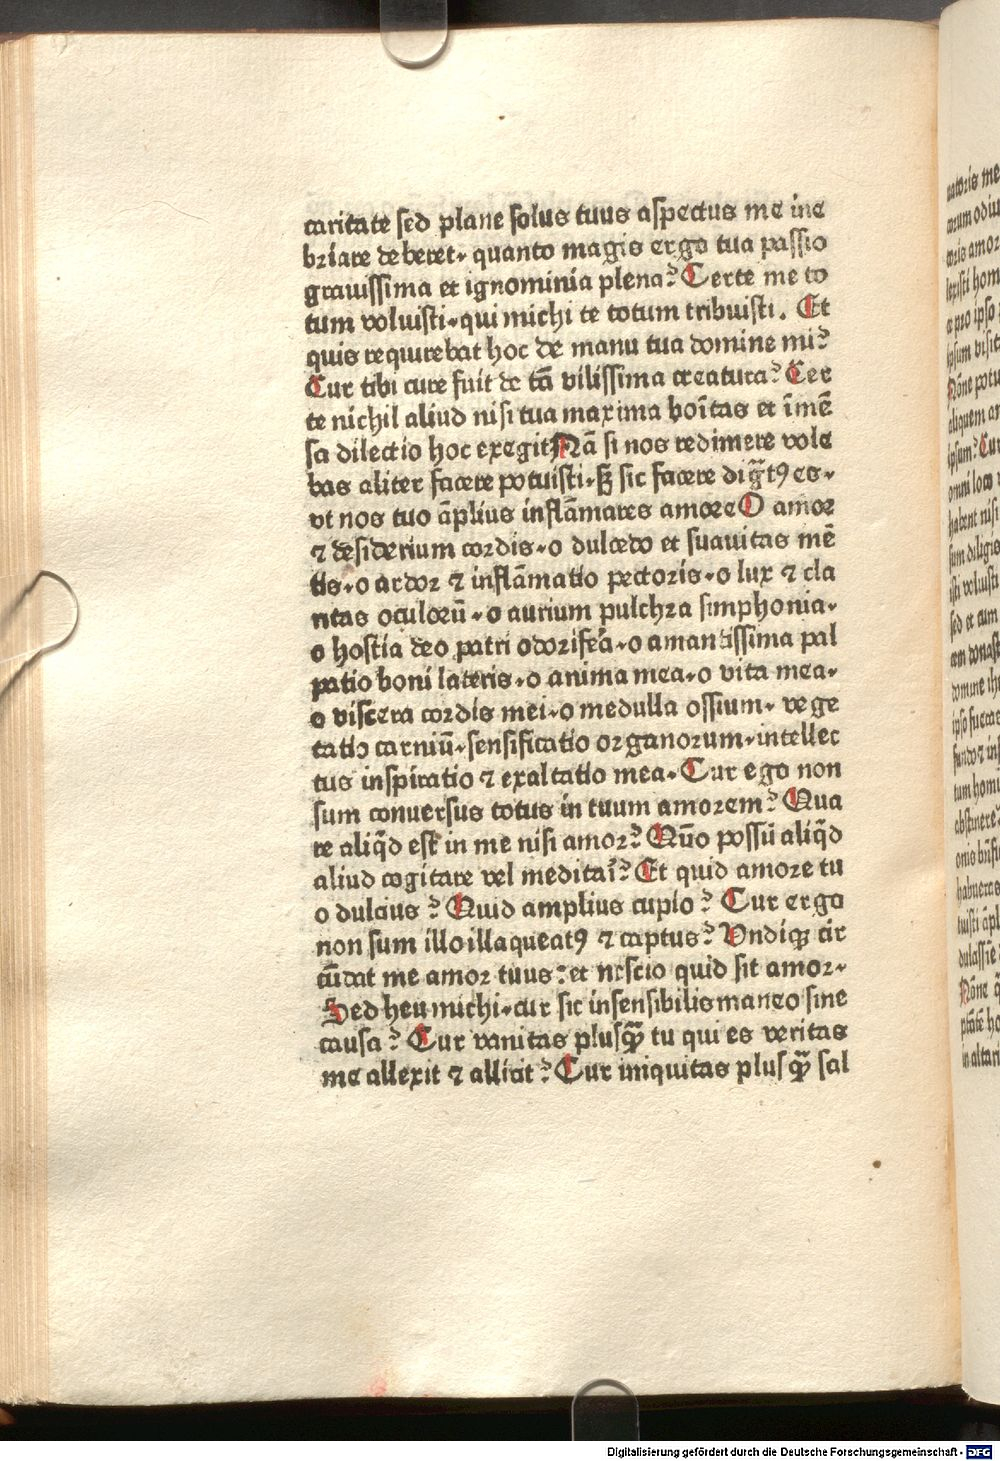 caritate sed plane solus tuus aspectus me ine
briare deberet. quanto magis ergo tua passio
grauissima et ignominia plena? Certe me to
tum voluisti. qui michi te totum tribuisti. Et
quis requirebat hoc de manu tua domine mi?
Cur tibi cure fuit de tā vilissima creatura? Cer
te nichil aliud nisi tua maxima boītas et īmē
sa dilectio hoc exegit Nā si nos redimere vole
bas aliter facere potuisti. sꝫ sic facere
vt nos tuo āplius inflāmares amore O amor
⁊ desiderium cordis. o dulcedo et suauitas mē
tis. o ardor ⁊ inflāmatio pectoris. o lux ⁊ cla
ritas oculorū. o aurium pulchra simphonia.
o hostia deo patri odorifēa. o amantissima pal
patio boni lateris. o anima mea. o vita mea.
o viscera cordis mei. o medulla ossium. vege
tatio carniū. sensificatio organorum. intellec
tus inspiratio ⁊ exaltatio mea. Cur ego non
sum conuersus totus in tuum amorem? Qua
re aliq̄d est in me nisi amor? Quō possū aliq̄d
aliud cogitare vel meditaī? Et quid amore tu
o dulcius? Quid amplius cupio? Cur ergo
non sum illo illaqueatꝰ ⁊ captus? Vndiqꝫ cir
cūdat me amor tuus: et nescio quid sit amor.
Sed heu michi. cur sic insensibilis maneo sine
causa? Cur vanitas plusꝙ̄ tu qui es veritas
me allexit ⁊ allicit? Cur iniquitas plusꝙ̄ sal
Digitalisierung gefördert durch die Deutsche Forschungsgemeinschaft - DFG